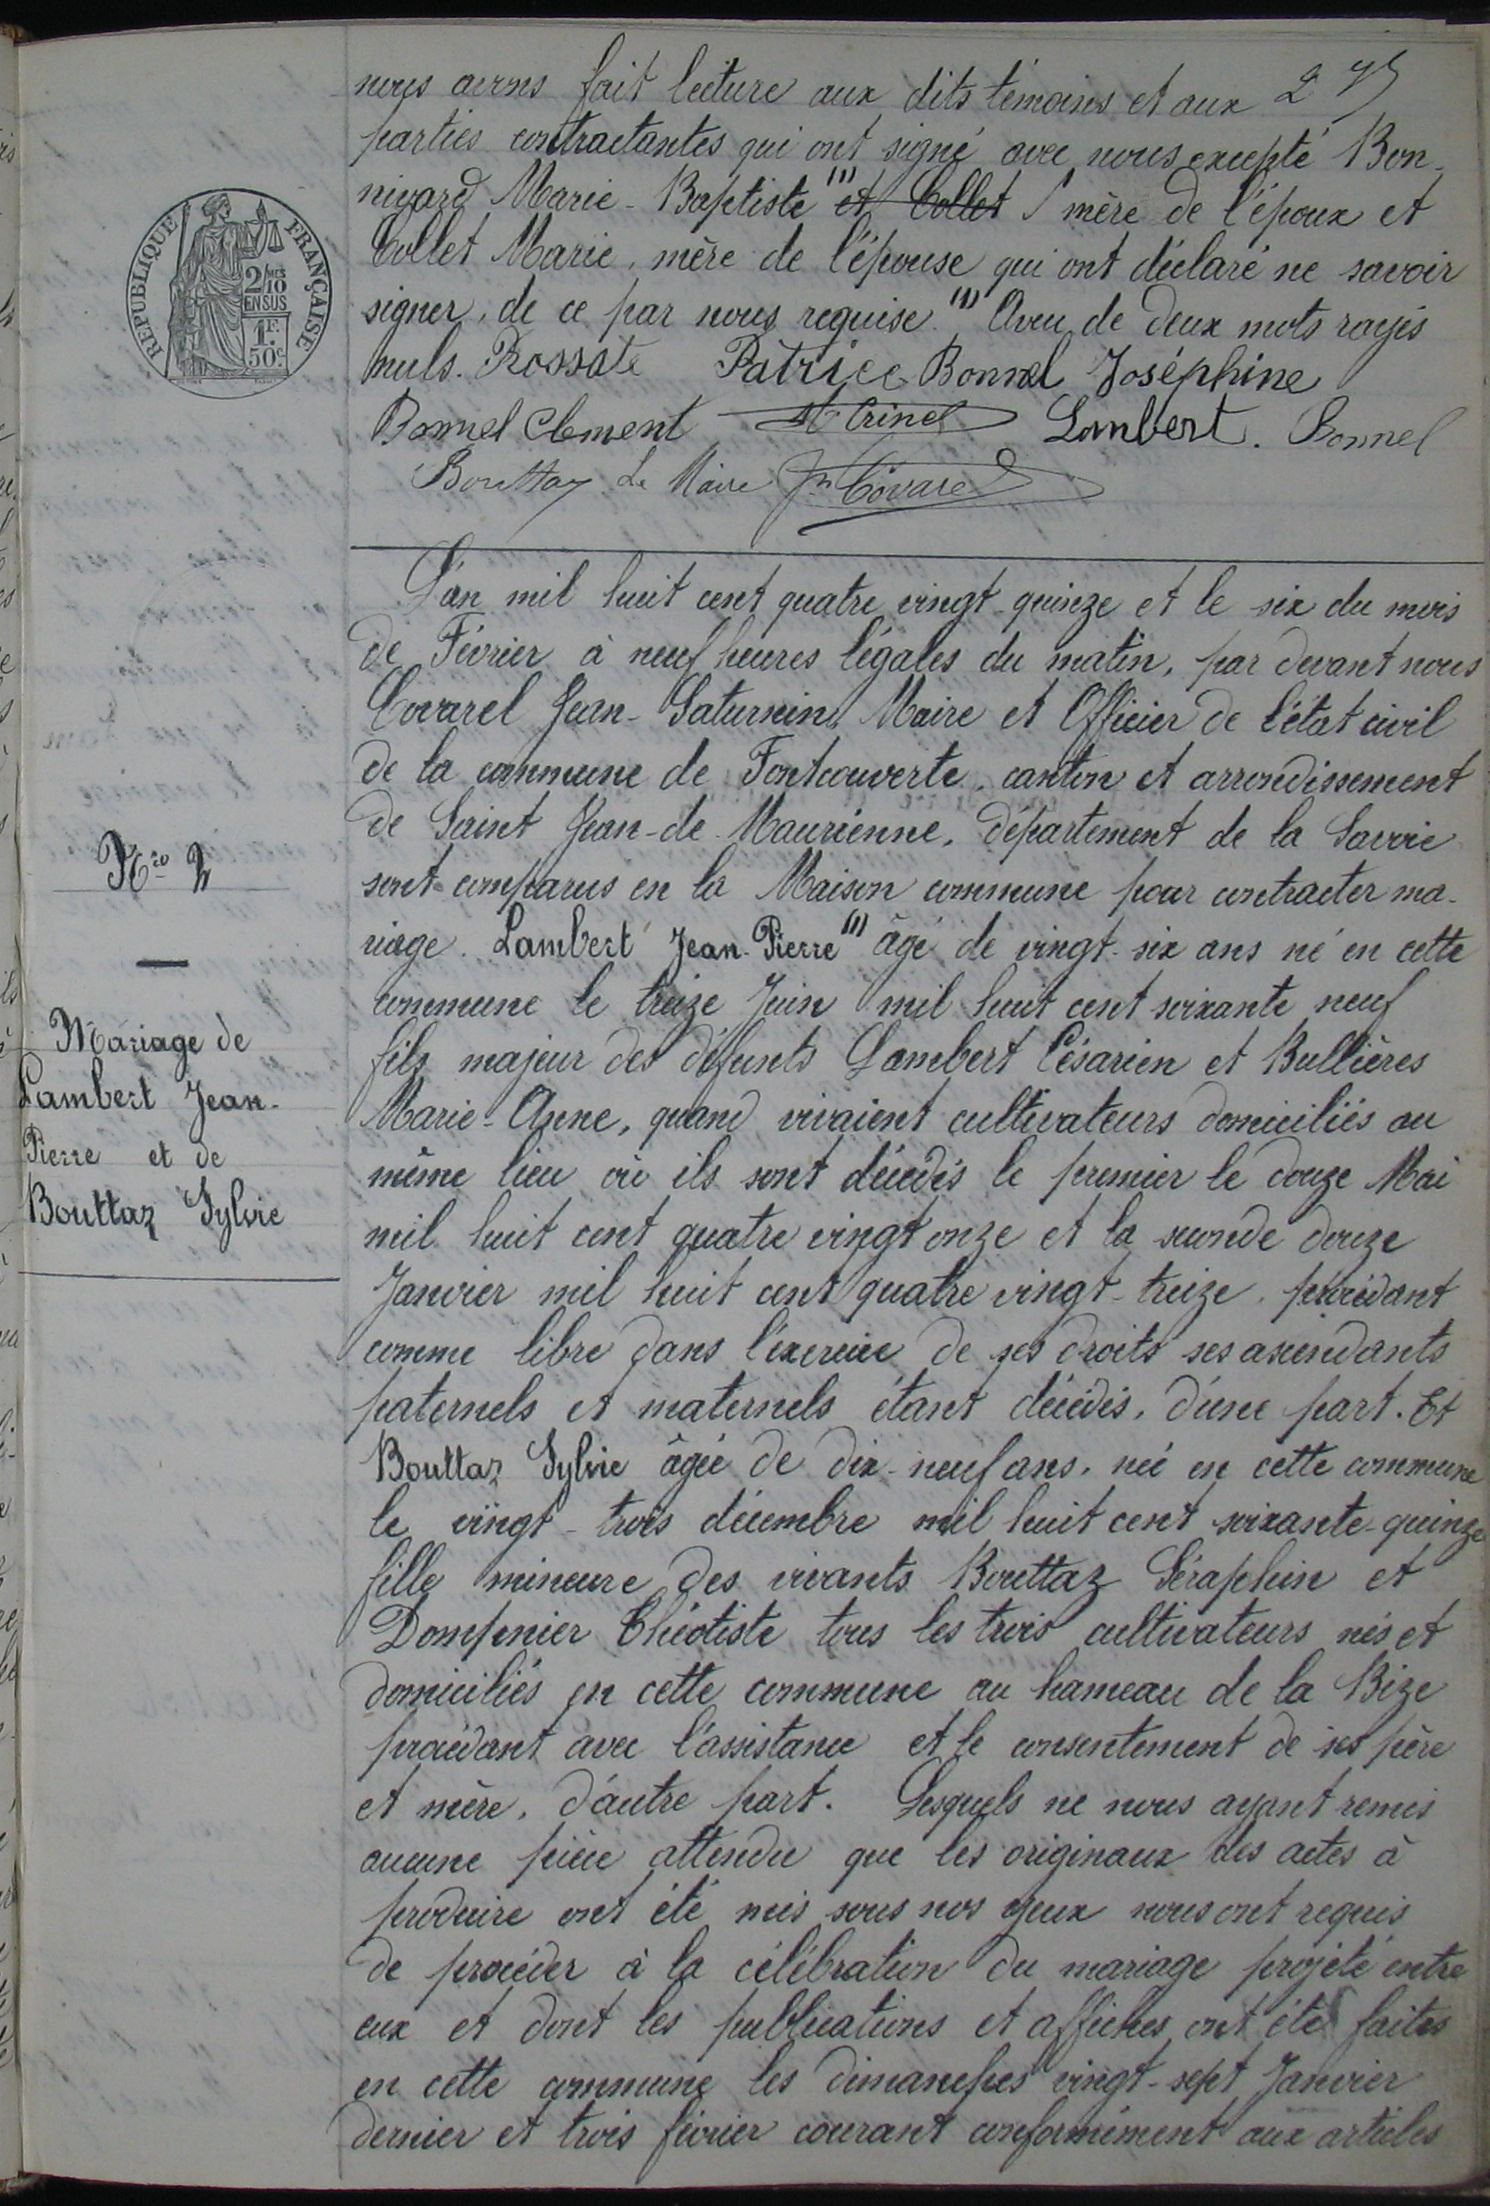 nous avons fait lecture aux dits témoins et aux
parties contractantes qui ont signé avec nous excepté Bon-
nivard Marie-Baptiste (1) et Collet / mère de l'époux et
Collet Marie, mère de l'épouse qui ont déclaré ne savoir
signer, de ce par nous requise. (1) Aveu de deux mots rayés
nuls. Rossat Patrice Bonnel Joséphine
Bonnel Clement Lambert. Bonnel
Bouttaz Le Maire Jn Covarel
REPUBLIQUE FRANÇAISE
2/10
EN SUS
1F.
50c.
L'an mil huit cent quatre vingt-quinze et le six du mois
de Février à neuf heures légales du matin, par devant nous
Covarel Jean-Saturnin, Maire et Officier de l'état civil
de la commune de Fontcouverte, canton et arrondissement
de Saint Jean-de-Maurienne, département de la Savoie
sont comparus en la Maison commune pour contracter ma-
riage. Lambert Jean-Pierre (1) âgé de vingt-six ans né en cette
commune le treize Juin mil huit cent soixante neuf
fils majeur des défunts Lambert Césarien et Bullières
Marie-Anne, quand vivaient cultivateurs domiciliés au
même lieu où ils sont décédés le premier le douze Mai
mil huit cent quatre vingt onze et la seconde douze
Janvier mil huit cent quatre vingt-treize, procédant
comme libre dans l'exercice de ses droits ses ascendants
paternels et maternels étant décédés, d'une part. Et
Bouttaz Sylvie âgée de dix-neuf ans, née en cette commune
le vingt-trois décembre mil huit cent soixante-quinze
fille mineure des vivants Bouttaz Séraphin et
Dompnier Théotiste tous les trois cultivateurs nés et
domiciliés en cette commune au hameau de la Bize
procédant avec l'assistance et le consentement de ses père
et mère, d'autre part. Lesquels ne nous ayant remis
aucune pièce attendu que les originaux des actes à
produire ont été mis sous nos yeux nous ont requis
de procéder à la célébration du mariage projeté entre
eux et dont les publications et affiches ont été faites
en cette commune les dimanches vingt-sept Janvier
dernier et trois février courant conformément aux articles
Nro 2
Mariage de
Lambert Jean-
Pierre et de
Bouttaz Sylvie